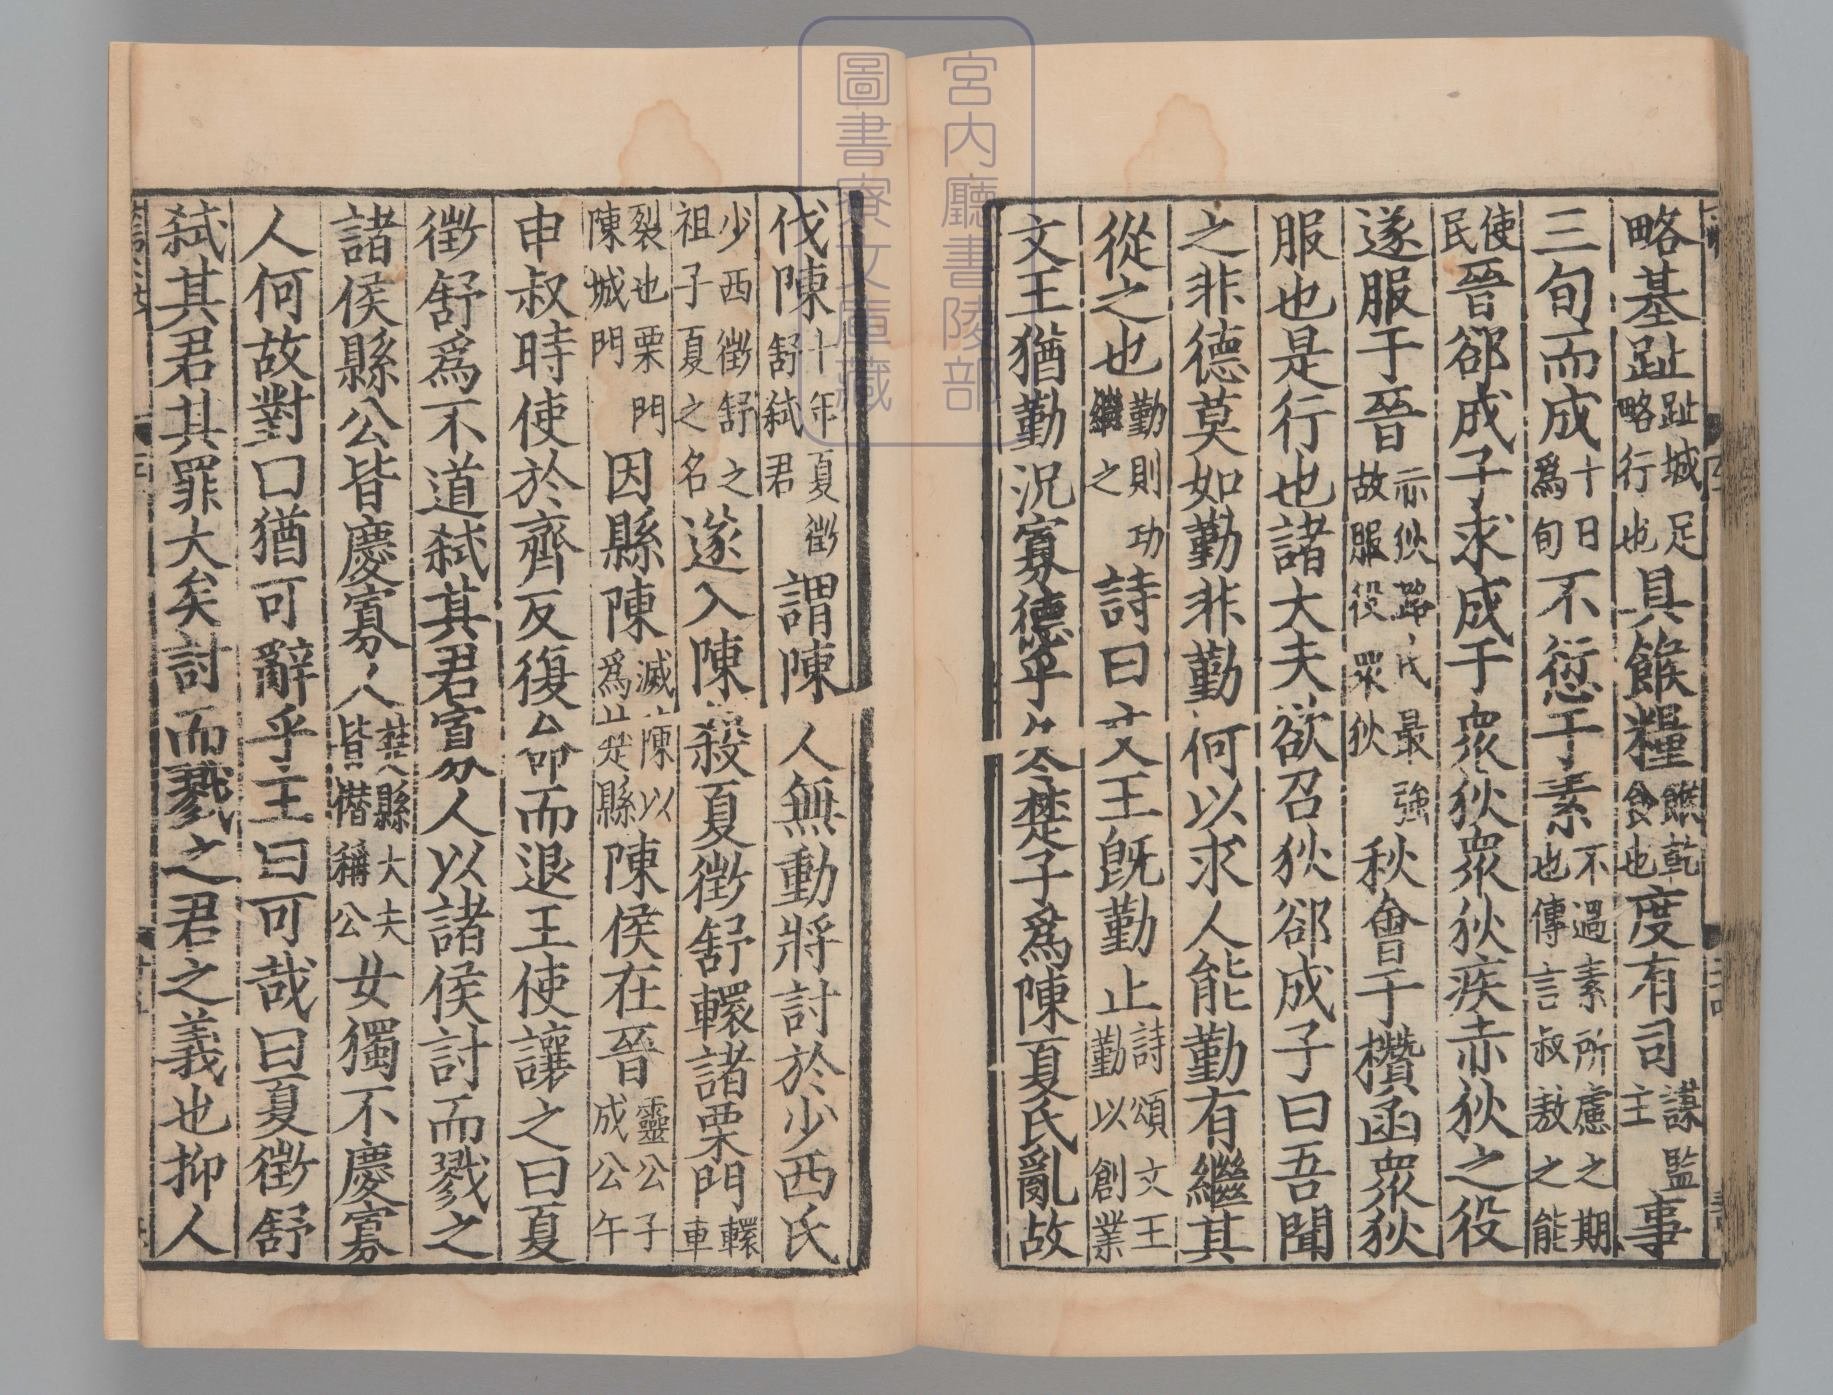 宮内廳書陵部
圖書寮文庫藏
略基趾趾城足略行也具餱糧餱乾食也度有司謀監主事
三旬而成十日爲旬不愆于素不過素所慮之期也傳言叔敖之能
使民晉郤成子求成于衆狄衆狄疾赤狄之役
遂服于晉赤狄潞氏最強故服役衆狄秋會于欑函衆狄
服也是行也諸大夫欲召狄郤成子曰吾聞
之非德莫如勤非勤何以求人能勤有繼其
從之也勤則功繼之詩曰文王旣勤止詩頌文王勤以創業
文王猶勤況寡德乎冬楚子爲陳夏氏亂故
伐陳十年夏徵舒弑君謂陳人無動將討於少西氏
少西徵舒之祖子夏之名遂入陳殺夏徵舒轘諸栗門轘車
裂也栗門陳城門因縣陳滅陳以爲楚縣陳侯在晉靈公子成公午
申叔時使於齊反復命而退王使讓之曰夏
徵舒爲不道弑其君寡人以諸侯討而戮之
諸侯縣公皆慶寡人楚縣大夫皆僭稱公女獨不慶寡
人何故對曰猶可辭乎王曰可哉曰夏徵舒
弑其君其罪大矣討而戮之君之義也抑人